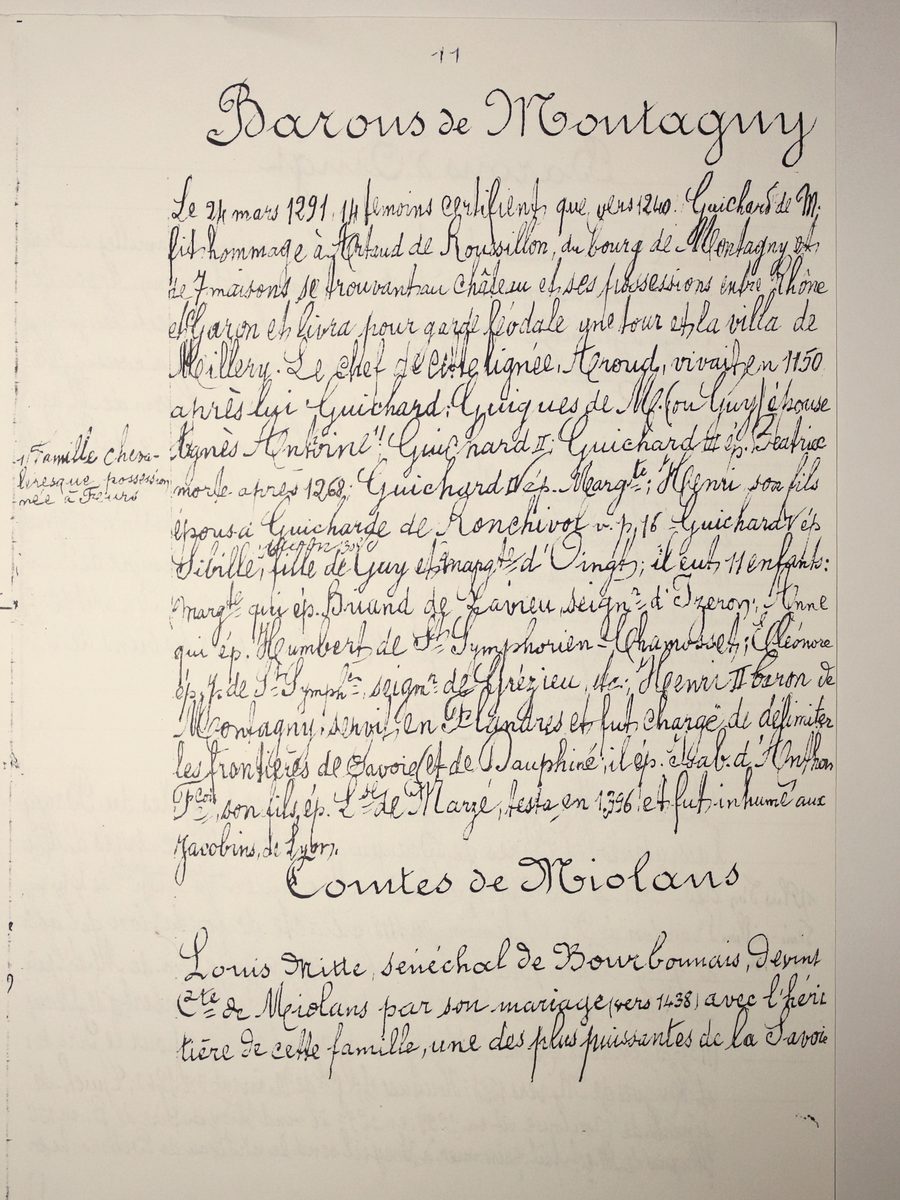 11
Barons de Montagny
Le 24 mars 1291, 14 temoins certifient que, vers 1240. Guichard de M.
fit hommage à Artaud de Roussillon, du bourg de Montagny et
de 7 maisons se trouvant au château et ses possessions entre Rhône
et Garon et livra pour garde féodale une tour et la villa de
Millery. Le chef de cette lignée, Aroud, vivait en 1150
après lui Guichard; Guigues de M. (ou Guy) épouse
Agnès Antoine 1); Guichard II; Guichard III ép. Beatrice
1) Famille cheva-
leresque possession
née à Feurs
morte après 1268; Guichard IV ép. Margte; Henri son fils
épousa Guicharde de Ronchivol v. p. 16 - Guichard V ép
Sibille, fille de Guy et Margte d'Oingt; il eut 11 enfants:
Margte qui ép. Briand de Lavieu, seignr d'Izeron; Anne
qui ép. Humbert de St Symphorien-Chamosset; Eléonore
ép. J. de St Symphn, seignr de Grézieu, etc; Henri II baron de
Montagny, servit en Flandres et fut chargé de délimiter
les frontières de Savoie et de Dauphiné; il ép. Isab. d'Anthon
son fils, ép. Lse de Marzé, testa en 1396 et fut inhumé aux
Jacobins, de Lyon.
Comtes de Miolans
Louis Mitte, sénéchal de Bourbonnais, devint
Cte de Miolans par son mariage (vers 1438) avec l'héri
tière de cette famille, une des plus puissantes de la Savoie